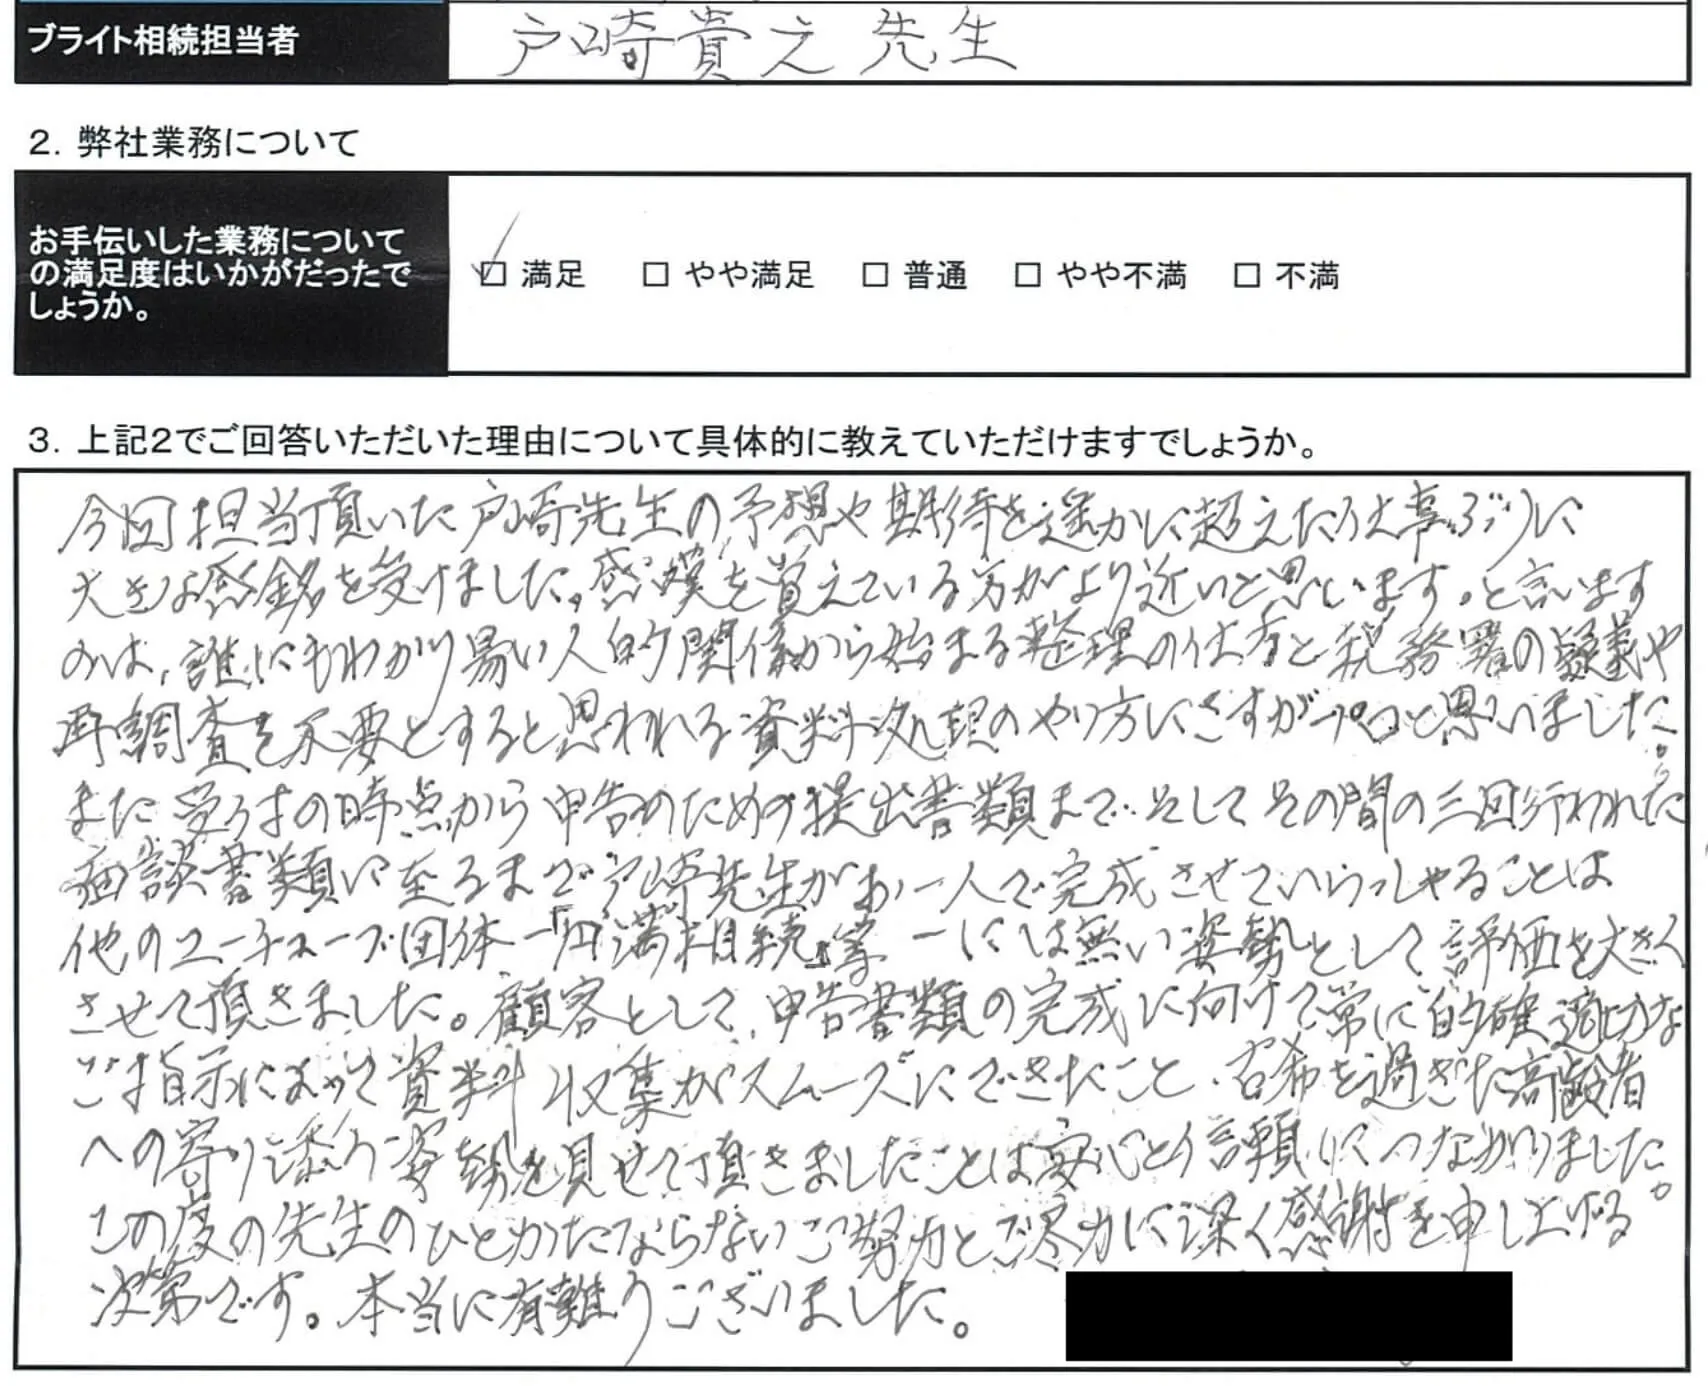 ブライト相続担当者
戸崎貴之 先生
2. 弊社業務について
お手伝いした業務について
の満足度はいかがだったで
しょうか。
☑ 満足 □ やや満足 □ 普通 □ やや不満 □ 不満
3. 上記2でご回答いただいた理由について具体的に教えていただけますでしょうか。
今回担当頂いた戸崎先生の予想や期待を遥かに超えた仕事ぶりに
大きな感銘を受けました。感嘆を覚えている方がより近いと思います。と言います
のは、誰にもわかり易い人的関係から始まる整理の仕方と税務署の疑義や
再調査を不要とすると思われる資料処理のやり方にさすがプロと思いました。
また受うけの時点から申告のための提出書類まで、そしてその間の三回行われた
面談書類に至るまで戸崎先生がお一人で完成させていらっしゃることは
他のユーチューブ団体ー「円満相続」等ーには無い姿勢として評価を大きく
させて頂きました。顧客として、申告書類の完成に向けて常に的確適切な
ご指示によって資料収集がスムーズにできたこと、古希を過ぎた高齢者
への寄り添う姿勢を見せて頂きましたことは安心と信頼につながりました。
この度の先生のひとかたならないご努力とご尽力に深く感謝を申し上げる
次第です。本当に有難うございました。